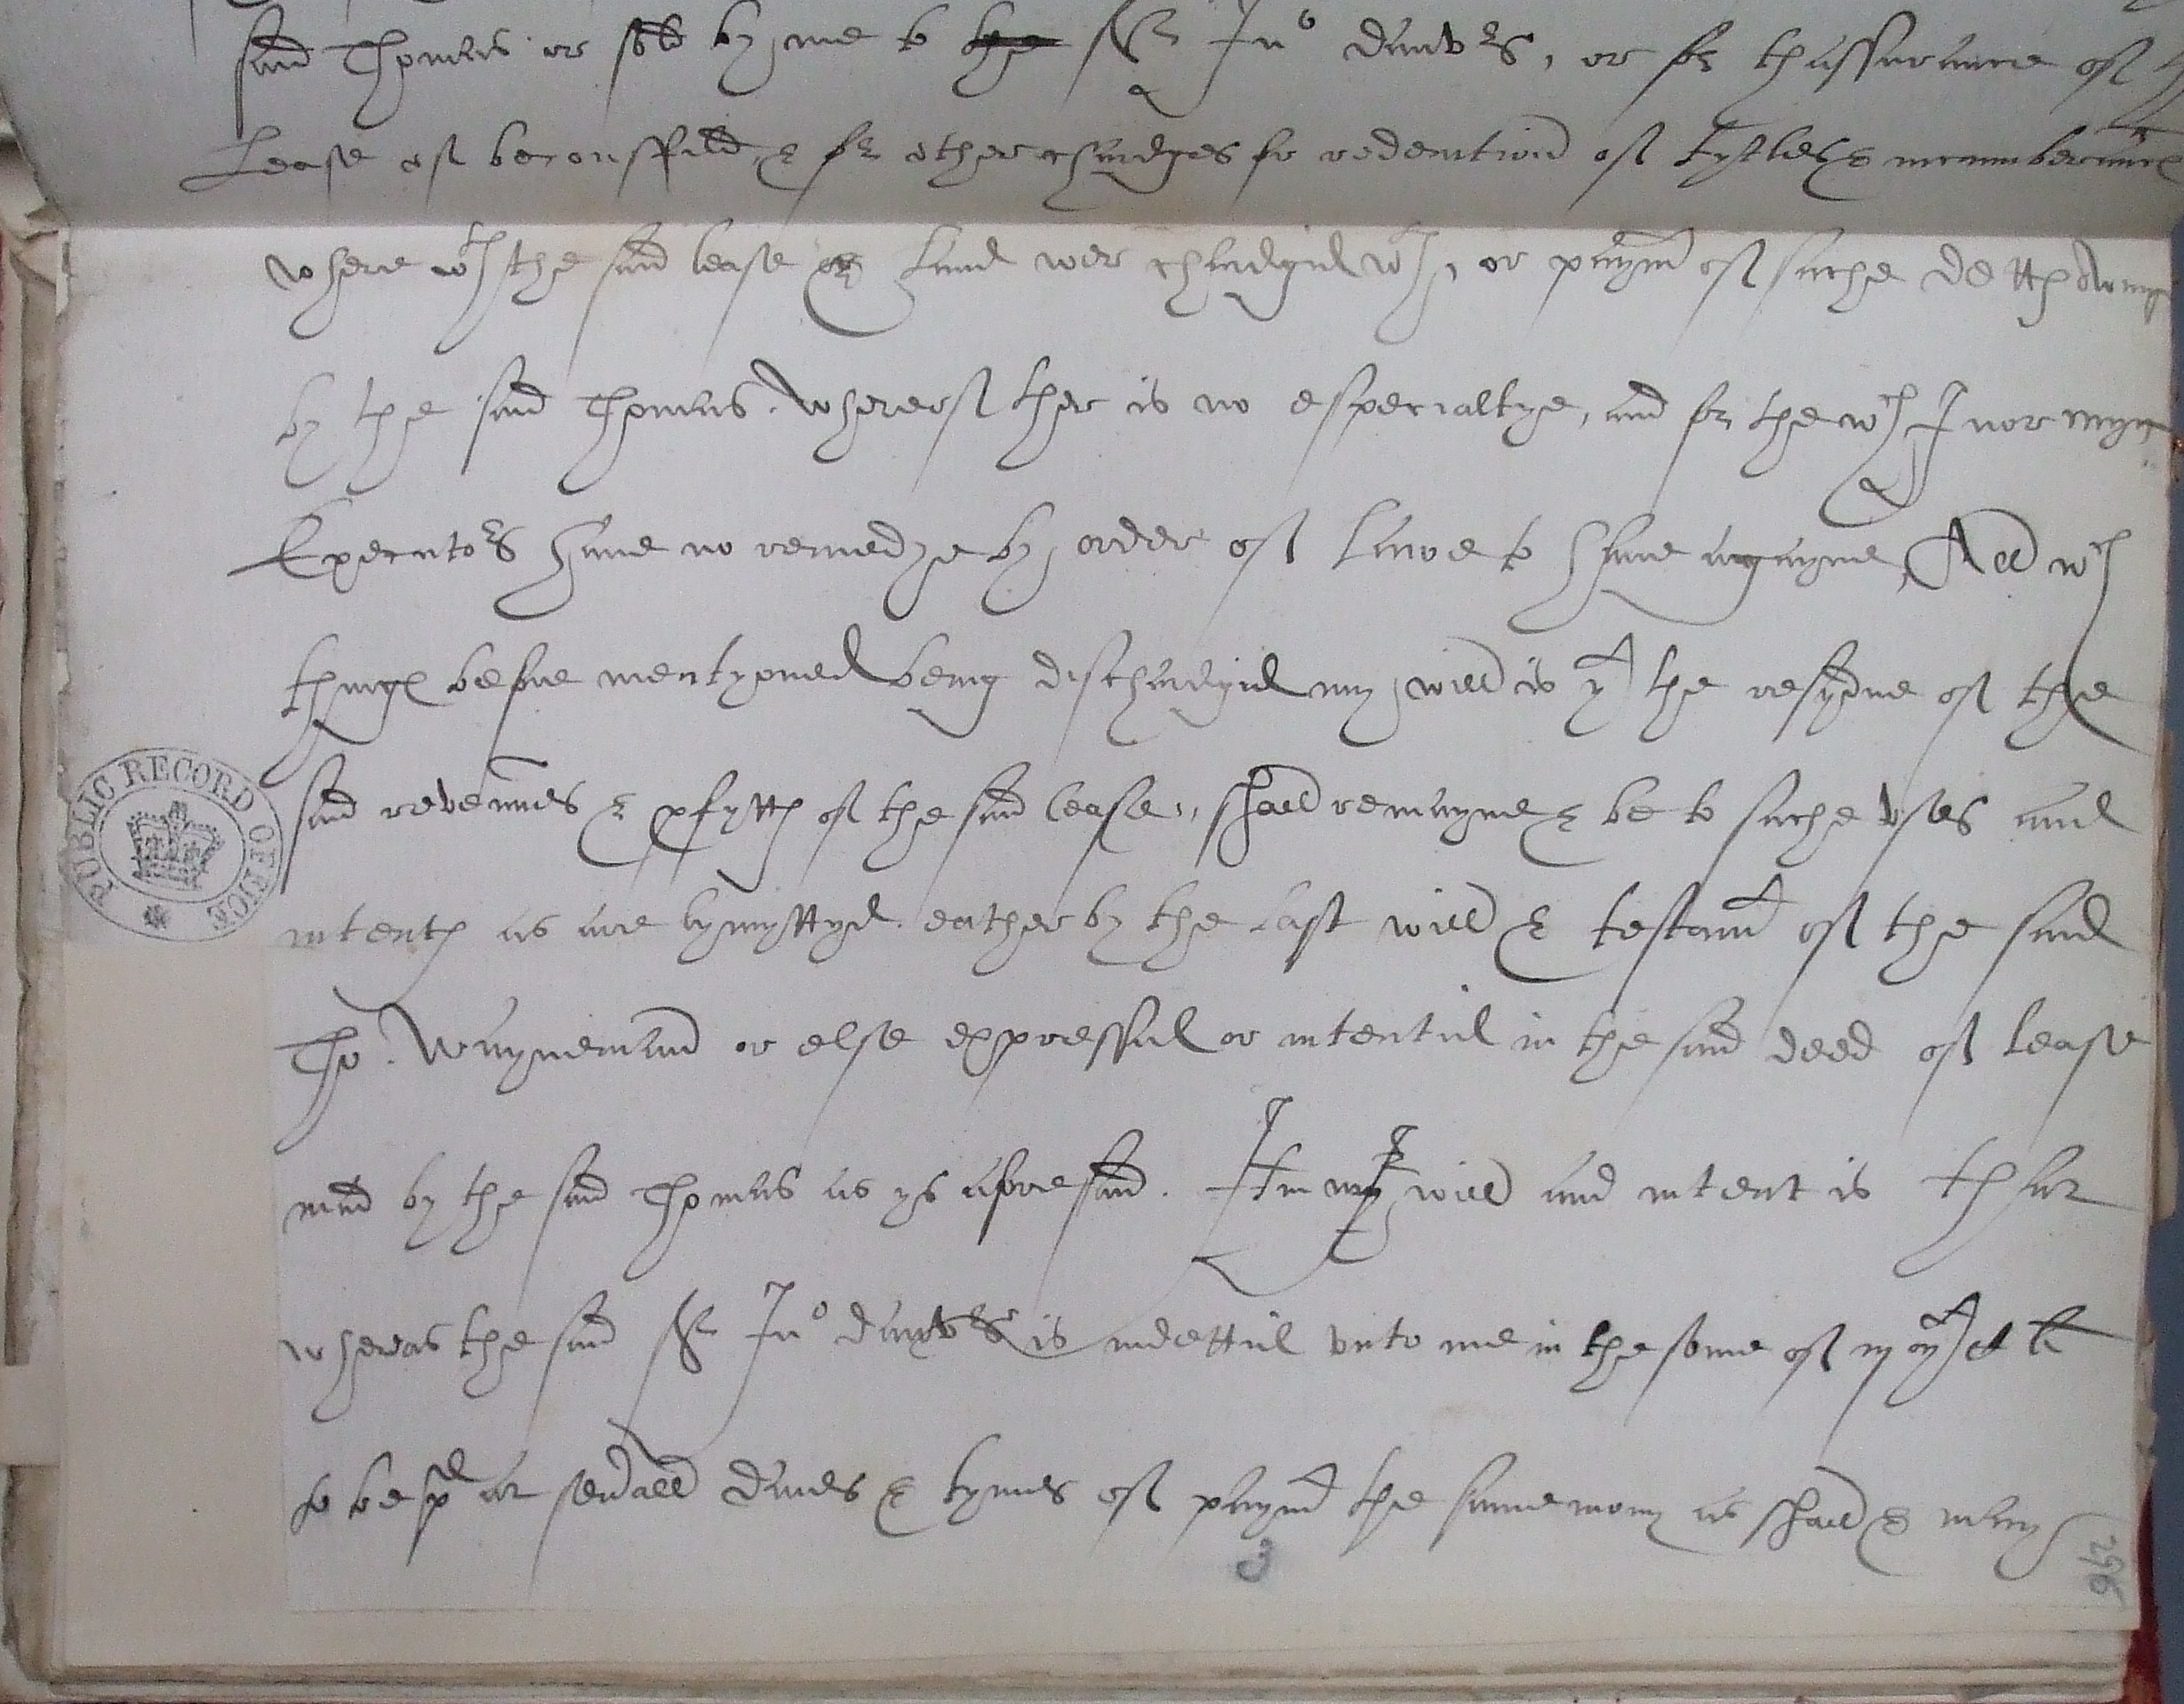 said Thomas or by me to Sr Jno davers, or for thassurance of
Lease of beconsfild & for other chardges for redemtion of tytles & incumberances
where wth the said lease or Land wer chardgid wth, or paymt of suche dettes owing
by the said Thomas. Wherof ther is no especialtye, and for the wch I nor myn
Executors have no remedye by order of Lawe to have agayne, All wch
thinges before mentyoned being dischardgid my will is yt the resydue of the
said revenues & profyttes of the said lease, shall remayne & be to suche uses and
intentes as are lymyttyd eather by the last will & testamt of the said
Tho. Wayneman or else expressid or intentid in the said deed of lease
mad by the said Thomas as ys aforesaid. Itm my will and intent is that
wheras the said Sr Jno davers is indettid unto me in the some of li
to be pd at severall daies & tymes of paymt the same mony as shall & may
PUBLIC RECORD OFFICE
3
296